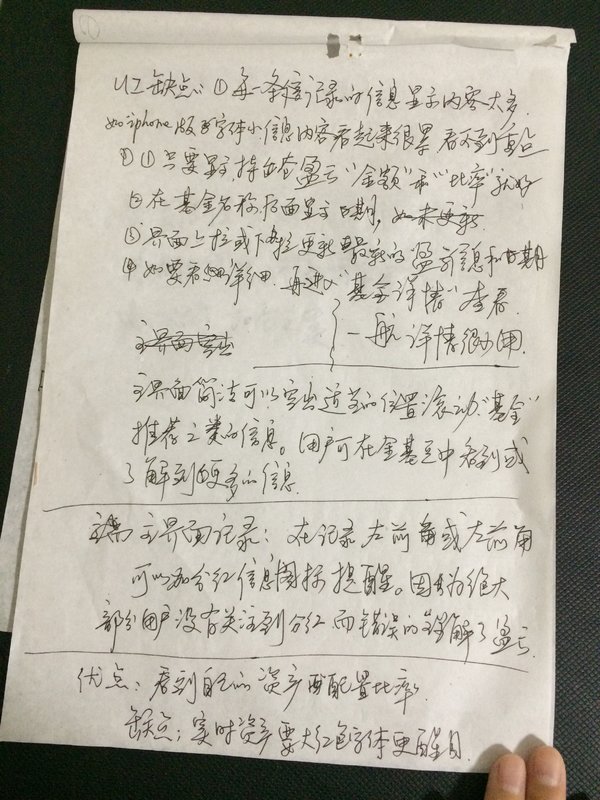 ①
UI缺点: ① 每一条记录的信息显示内容太多.
如iphone版字体小信息内容看起来很累 看不到重点
① 只要显示持仓盈亏"金额"和"比率"就好
② 在基金名称后面显示日期, 如未更新
③ 界面上拉或下拉更新最新的盈亏信息和日期
④ 如要看详细. 再进入"基金详情"查看.
一般 详情很少用.
主界面空出
主界面简洁可以空出适当的位置滚动"基金"
推荐之类的信息。用户可在金基豆中看到或
了解到更多的信息.
主界面记录: 在记录左前角或左前角
可以加分红信息图标提醒。因为绝大
部分用户没有关注到分红而错误的理解了盈亏.
优点: 看到自己的资产配置比率.
缺点: 实时资产要大红色字体更醒目.